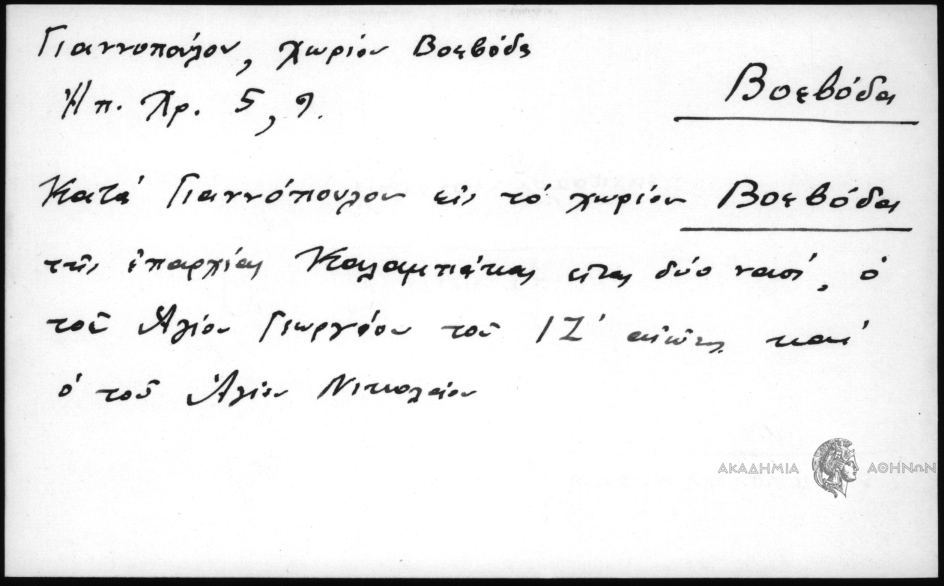 Γιαννοπούλου, χωρίον Βοεβόδα
Ἠπ. Χρ. 5, 9.
Βοεβόδα
Κατά Γιαννόπουλον εἰς τό χωρίον Βοεβόδα
τῆς ἐπαρχίας Καλαμπάκας εἶναι δύο ναοί, ὁ
τοῦ Ἁγίου Γεωργίου τοῦ ΙΖ΄ αἰῶνος καί
ὁ τοῦ Ἁγίου Νικολάου
ΑΚΑΔΗΜΙΑ ΑΘΗΝΩΝ